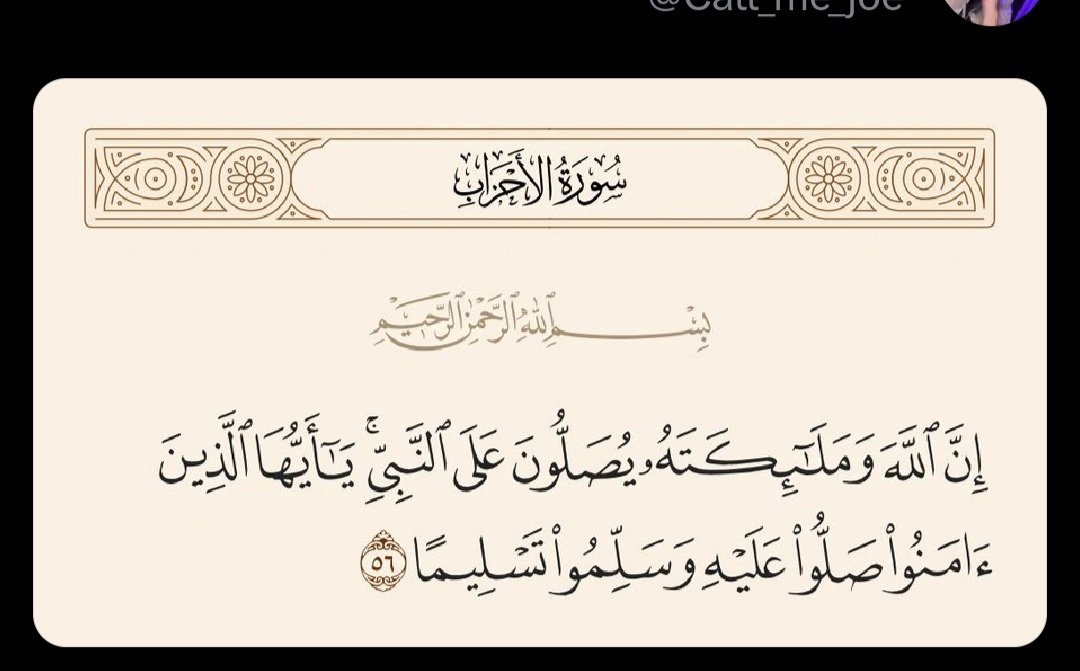 @Call_me_joe
سُورَةُ الأَحْزَابِ
بِسْمِ ٱللَّهِ ٱلرَّحْمَٰنِ ٱلرَّحِيمِ
إِنَّ ٱللَّهَ وَمَلَٰٓئِكَتَهُۥ يُصَلُّونَ عَلَى ٱلنَّبِيِّۚ يَٰٓأَيُّهَا ٱلَّذِينَ
ءَامَنُوا۟ صَلُّوا۟ عَلَيْهِ وَسَلِّمُوا۟ تَسْلِيمًا ٥٦